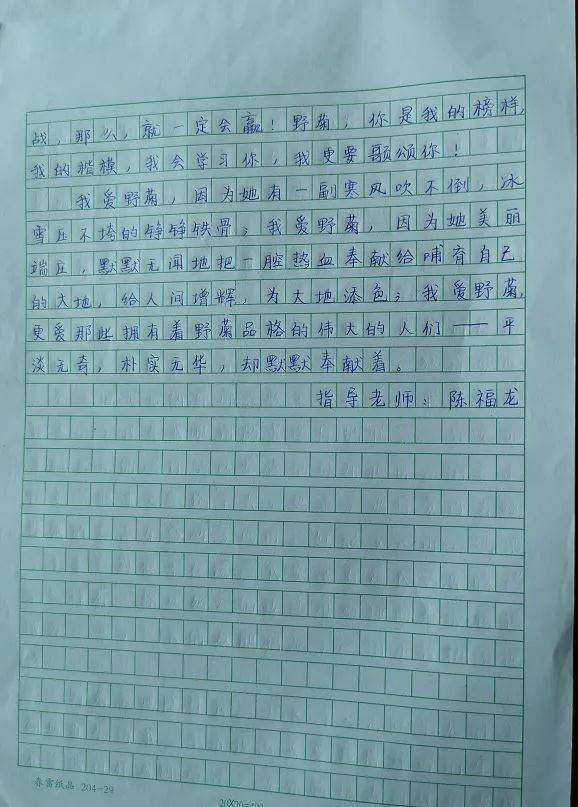 战，那么，就一定会赢！野菊，你是我的榜样，
我的楷模，我会学习你，我更要歌颂你！
我爱野菊，因为她有一副寒风吹不倒，冰
雪压不垮的铮铮铁骨；我爱野菊，因为她美丽
端庄，默默无闻地把一腔热血奉献给哺育自己
的大地，给人间增辉，为大地添色；我爱野菊，
更爱那些拥有着野菊品格的伟大的人们——平
淡无奇，朴实无华，却默默奉献着。
指导老师：陈福龙
春雷纸品 204-29
20X20=400